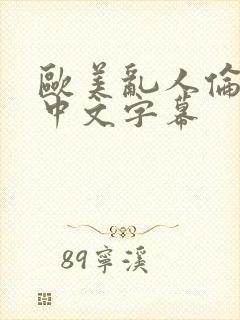 歐美亂人倫
中文字幕
89寧溪